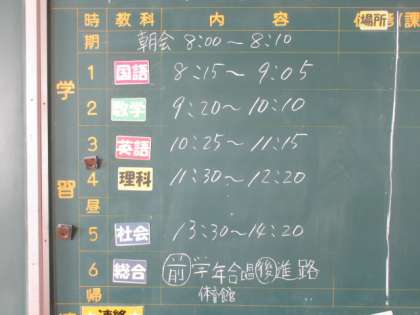 時 教科 内容 場所 課
期 朝会 8:00〜8:10
学習
1 国語 8:15〜9:05
2 数学 9:20〜10:10
3 英語 10:25〜11:15
4 理科 11:30〜12:20
昼
5 社会 13:30〜14:20
6 総合 前 学年合唱 後 進路
帰 体育館
連絡